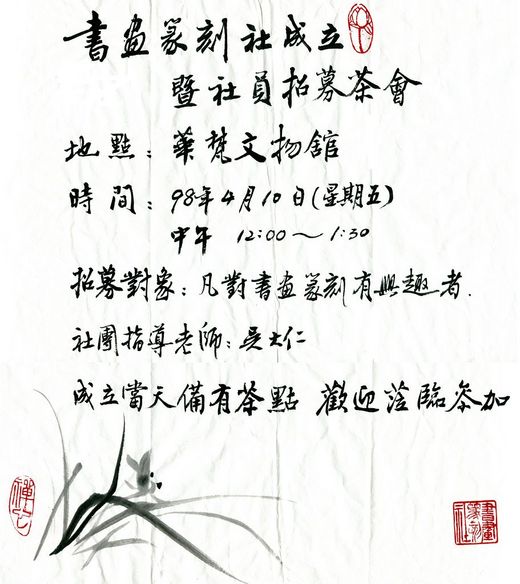 書画篆刻社成立
暨社員招募茶會
地點：華梵文物館
時間：98年4月10日(星期五)
中午 12:00～1:30
招募對象：凡對書画篆刻有興趣者.
社團指導老師：吳大仁
成立當天備有茶點 歡迎蒞臨參加
書畫篆刻社